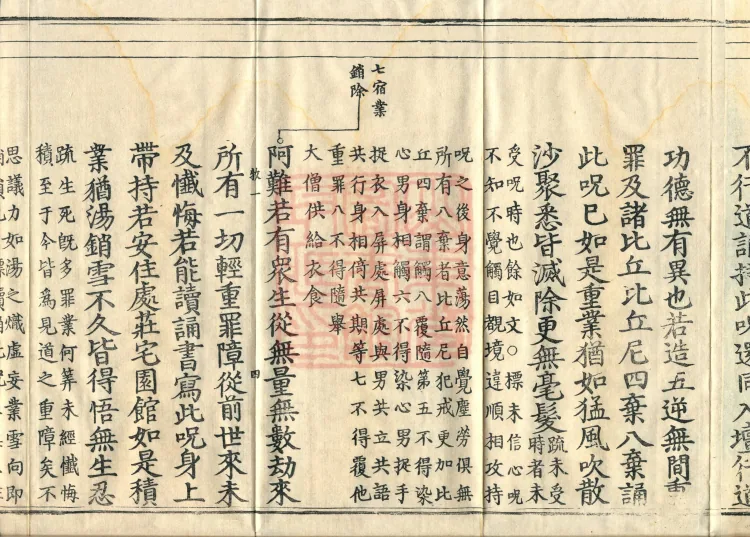 不行道誦持此呪還同入壇行道
功德無有異也若造五逆無間重
罪及諸比丘比丘尼四棄八棄誦
此呪已如是重業猶如猛風吹散
沙聚悉皆滅除更無毫髮疏未受時者未
受呪時也餘如文○標未信心呪
不知不覺觸目觀境違順相攻持
呪之後身意蕩然自覺塵勞俱無
所有八棄者比丘尼犯戒更加比
丘四棄謂觸八覆隨第五不得染
心男身相觸六不得染心男捉手
捉衣入屏處屏處與男共立共語
共行身相倚共期等七不得覆他
重罪八不得隨舉
大僧供給衣食
七宿業
銷除
阿難若有衆生從無量無數劫來
教一
四
所有一切輕重罪障從前世來未
及懺悔若能讀誦書寫此呪身上
帶持若安住處莊宅園館如是積
業猶湯銷雪不久皆得悟無生忍
疏生死旣多罪業何筭未經懺悔
積至于今皆爲見道之重障矣不
思議力如湯之熾虛妄業雪向即